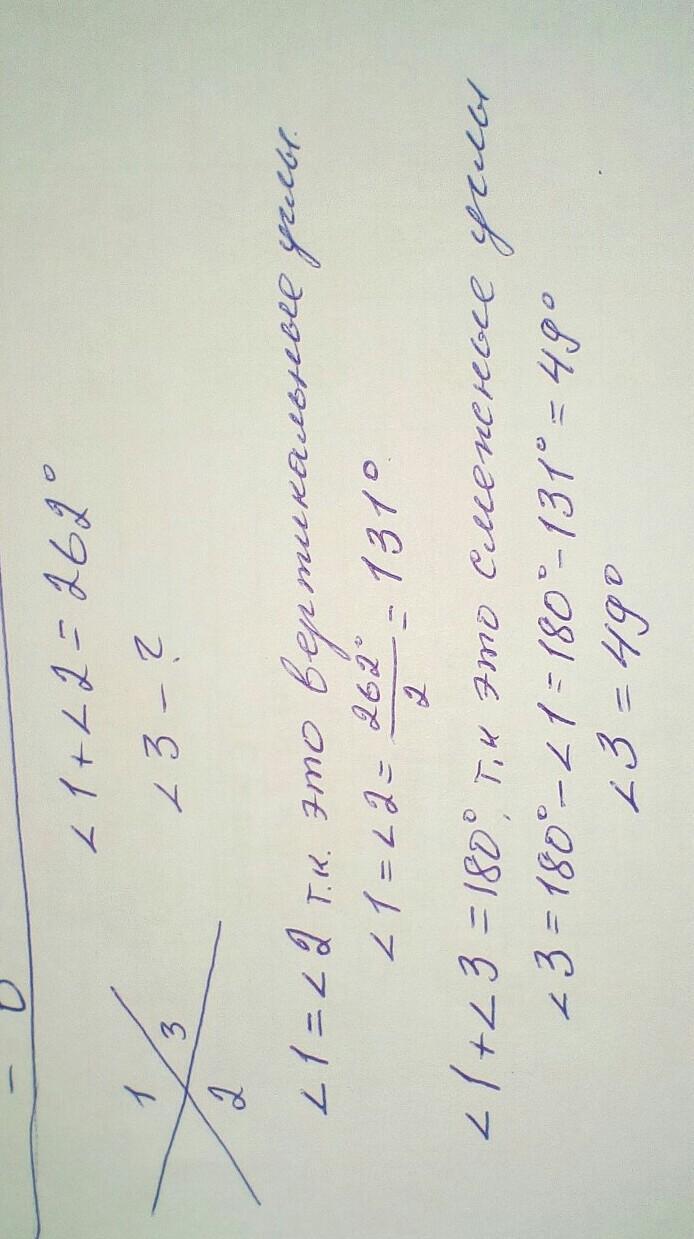 ∠1+∠2=262°
∠3-?
1
3
2
∠1=∠2 т.к. это вертикальные углы.
∠1=∠2=262°/2=131°
∠1+∠3=180°, т.к это смежные углы
∠3=180°-∠1=180°-131°=49°
∠3=49°